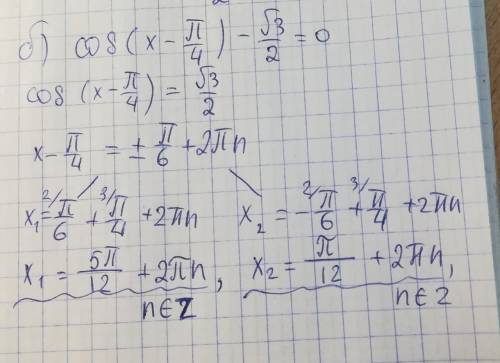 б) cos(x - π/4) - √3/2 = 0
cos(x - π/4) = √3/2
x - π/4 = ± π/6 + 2πn
x₁ = ²⁄π/6 + ³⁄π/4 + 2πn    x₂ = -²⁄π/6 + ³⁄π/4 + 2πn
x₁ = 5π/12 + 2πn,    x₂ = π/12 + 2πn,
n∈Z    n∈Z